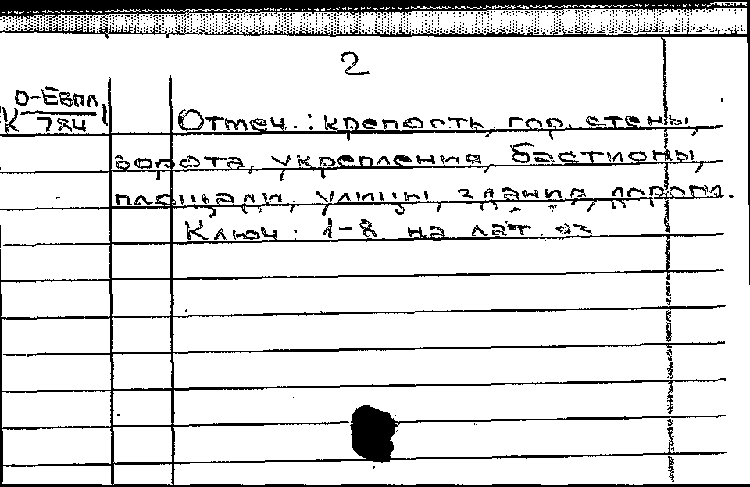 2
К О-Евпл
7 84
Отмеч.: крепость, гор. стены,
ворота, укрепления, бастионы,
площади, улицы, здания, дороги.
Ключ: 1-8 на лат. яз